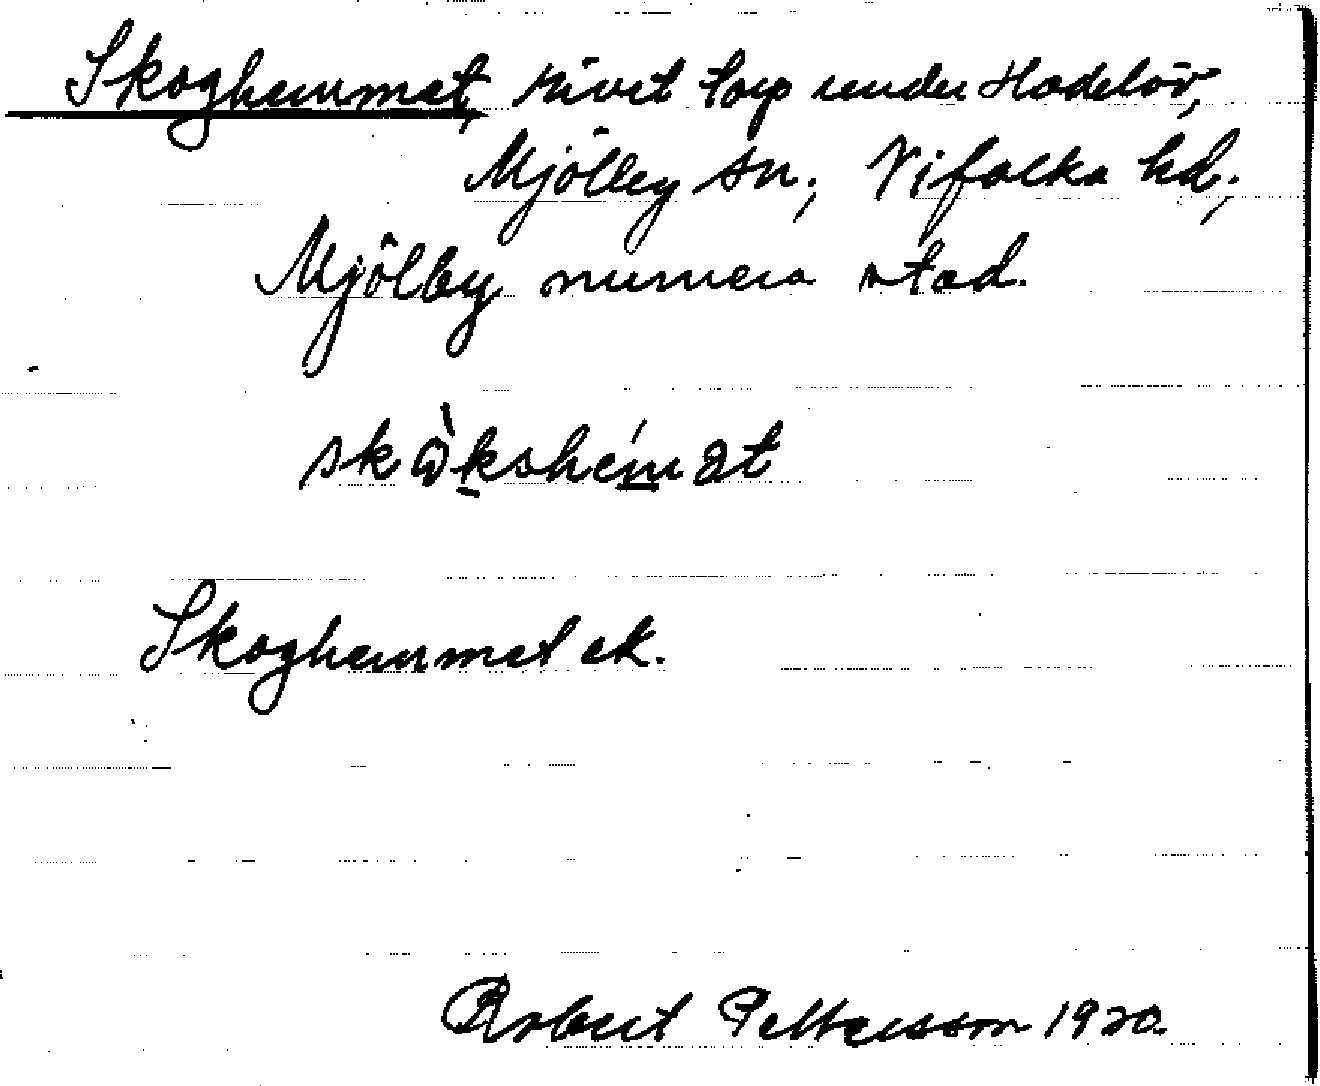 Skoghemmet, rivet torp under Hadelöv,
Mjölby sn, Vifolka hd,
Mjölby numera stad.
Skoghemmet ek.
Robert Pettersson 1920